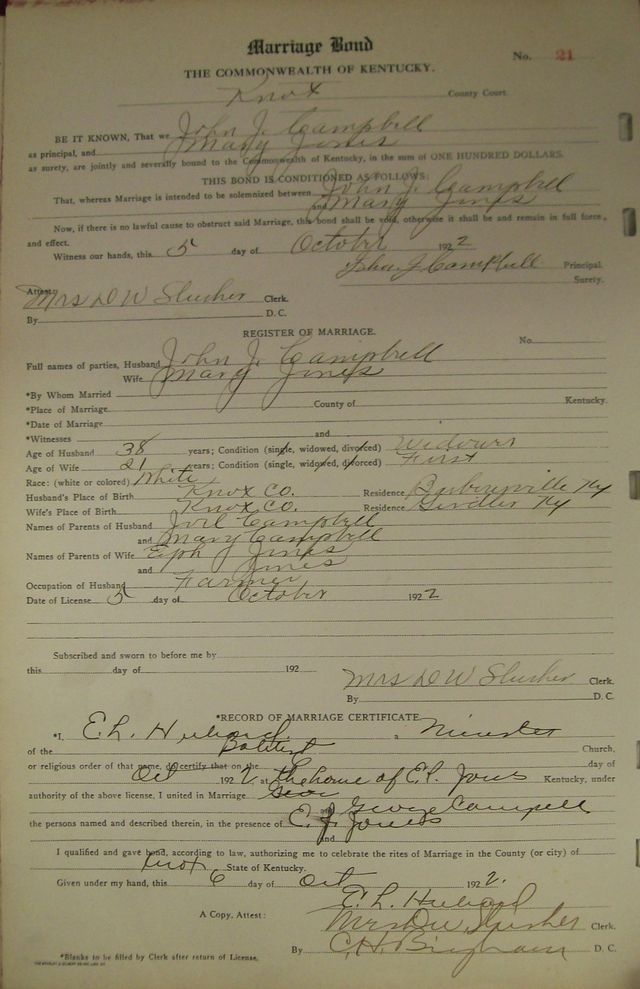 Marriage Bond
No. 21
THE COMMONWEALTH OF KENTUCKY.
Knox County Court
BE IT KNOWN, That we John J. Campbell
as principal, and Mary Jones
as surety, are jointly and severally bound to the Commonwealth of Kentucky, in the sum of ONE HUNDRED DOLLARS.
THIS BOND IS CONDITIONED AS FOLLOWS:
That, whereas Marriage is intended to be solemnized between John J. Campbell
and Mary Jones
Now, if there is no lawful cause to obstruct said Marriage, this bond shall be void, otherwise it shall be and remain in full force,
and effect.
Witness our hands, this 5 day of October 1922
John J Campbell Principal.
Surety.
Attest:
Mrs D W Slusher Clerk.
By D. C.
REGISTER OF MARRIAGE.
No.
Full names of parties, Husband John J. Campbell
Wife Mary Jones
*By Whom Married
*Place of Marriage County of Kentucky.
*Date of Marriage
*Witnesses and
Age of Husband 38 years; Condition (single, widowed, divorced) Widower
Age of Wife 21 years; Condition (single, widowed, divorced) First
Race: (white or colored) White
Husband's Place of Birth Knox Co. Residence Barbourville Ky
Wife's Place of Birth Knox Co. Residence Girdler Ky
Names of Parents of Husband Campbell
and Mary Campbell
Names of Parents of Wife Eph Jones
and Jones
Occupation of Husband Farmer
Date of License 5 day of October 1922
Subscribed and sworn to before me by
this day of 192
Mrs D W Slusher Clerk.
By D. C.
*RECORD OF MARRIAGE CERTIFICATE
*I, E. L. a Minister
of the Babtist Church,
or religious order of that name, do certify that on the day of
Oct 1922 at the home of E. Jones Kentucky, under
authority of the above license, I united in Marriage
and George Campell
the persons named and described therein, in the presence of E. J. Jones
and
I qualified and gave bond, according to law, authorizing me to celebrate the rites of Marriage in the County (or city) of
Knox, State of Kentucky.
Given under my hand, this 6 day of Oct 1922.
E. L.
A Copy, Attest: Mrs DW Slusher Clerk.
By C. H. Bingham D. C.
*Blanks to be filled by Clerk after return of License.